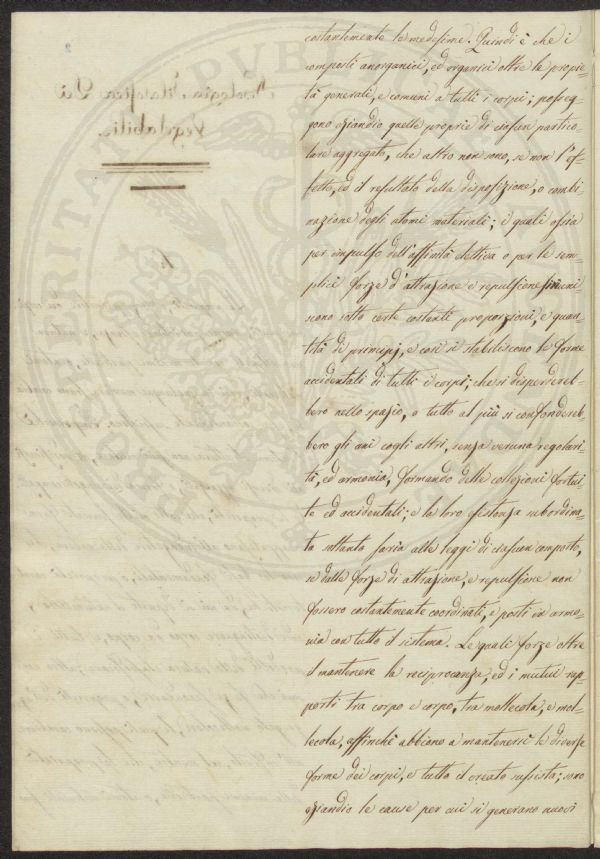 costantemente le medesime. Quindi è che i
composti anorganici, ed organici oltre le proprie-
tà generali, e comuni a tutti i corpi; posseg-
gono eziandio quelle proprie di ciascun partico-
lare aggregato, che altro non sono, se non l'ef-
fetto, ed il resultato della disposizione, o combi-
nazione degli atomi materiali; i quali ossia
per impulso dell'affinità elettiva o per le sem-
plici forze d'attrazione e repulsione
scono sotto certe costanti proporzioni, e quan-
tità di principj, e così si stabiliscono le forme
accidentali di tutti i corpi; che si disperdereb-
bero nello spazio, o tutto al più si confondereb-
bero gli uni cogli altri, senza veruna regolari-
tà, ed armonia, formando delle collezioni fortui-
te ed accidentali; e la loro esistenza subordina-
ta soltanto saria alle leggi di ciascun composto,
se dalle forze di attrazione, e repulsione non
fossero costantemente coordinati, e posti in armo-
nia con tutto il sistema. Le quali forze oltre
il mantenere la reciprocanza, ed i mutui rap-
porti tra corpo e corpo, tra mollecola, e mol-
lecola, affinchè abbiano a mantenersi le diverse
forme dei corpi, e tutto il creato sussista; sono
eziandio le cause per cui si generano nuovi